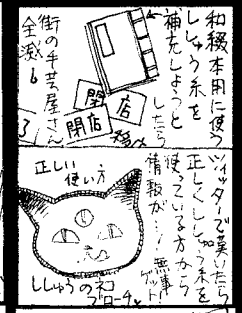 和綴本用に使う
ししゅう糸を
補充しようっと
したら
閉店
閉店
街の手芸屋さん
全滅
ツイッターで嘆いたら
正しくししゅう糸を
使っている方から
情報が…!無事
ゲット!
正しい
使い方
ししゅうのネコ
ブローチ